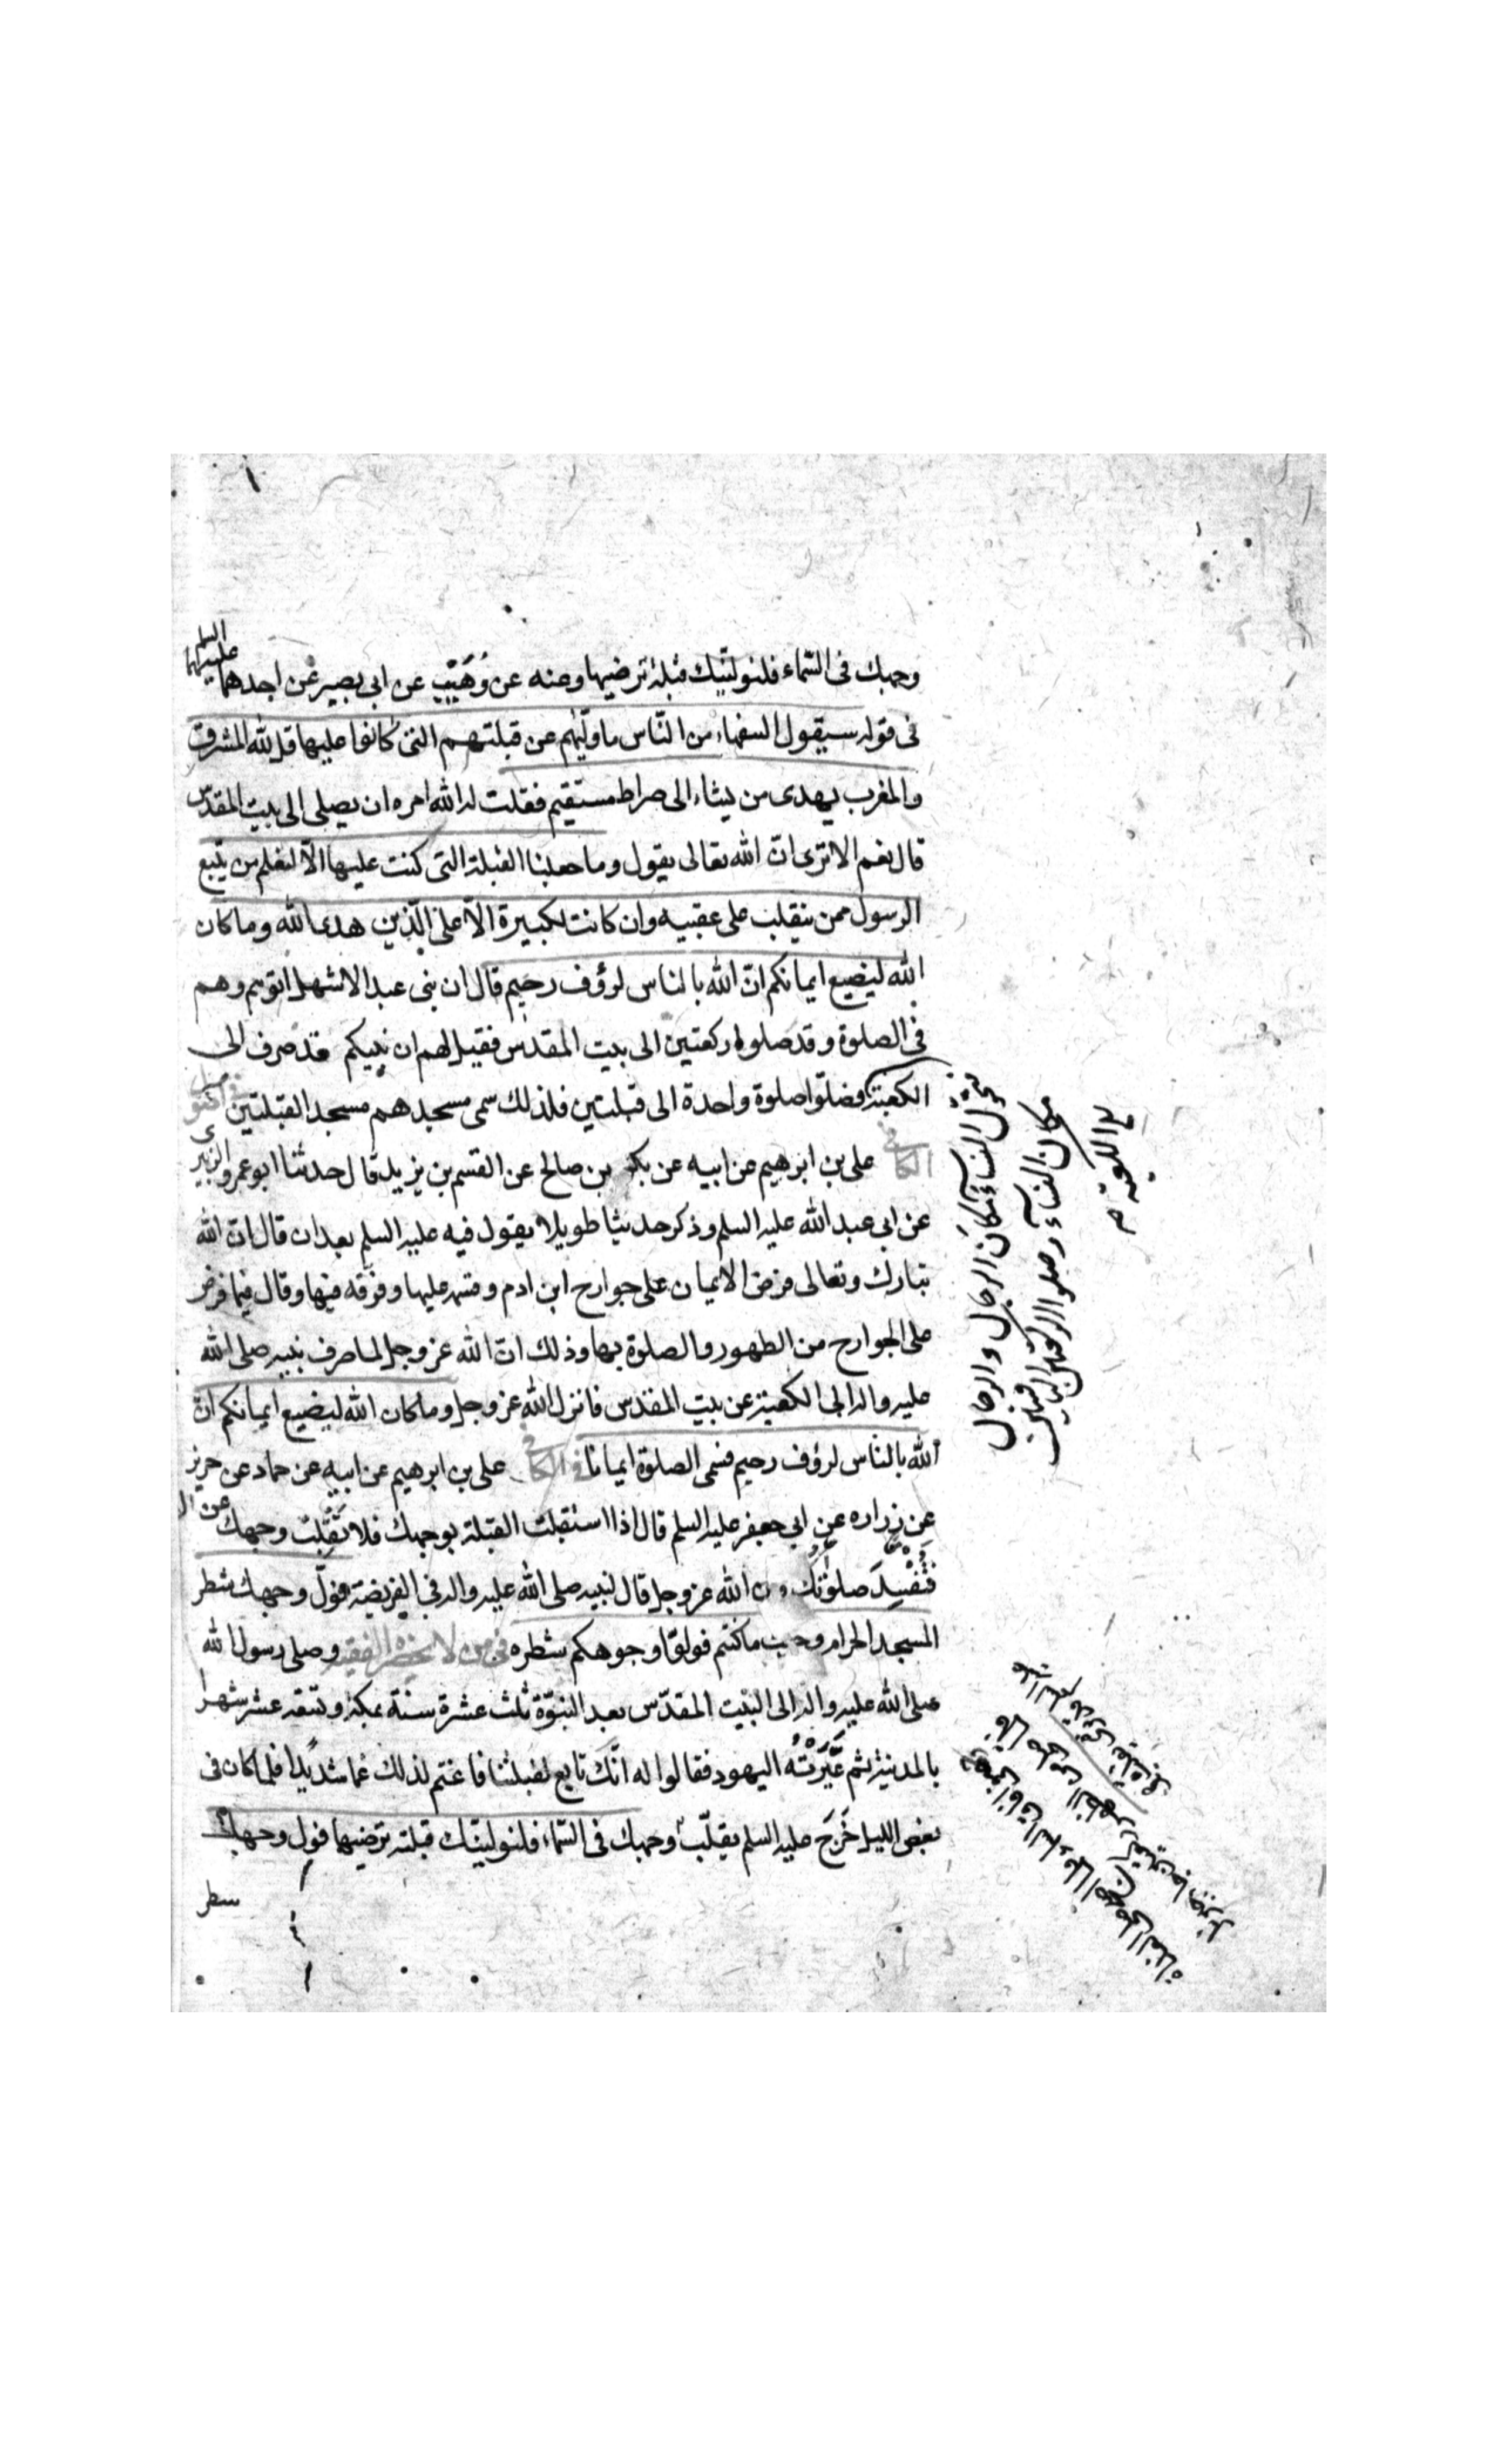 وجهك فى السّماء فلنولّينّك قبلة ترضيها وعنه عن وُهَيْبٍ عن ابى بصير عن احدهما عليهما السلم
فى قوله سيقول السفهاء من النّاس ما ولّيهم عن قبلتهم التى كانوا عليها قل لله المشرق
والمغرب يهدى من يشاء الى صراط مستقيم فقلت له الله امره ان يصلى الى بيت المقدس
قال نعم الا ترى انّ الله تعالى يقول وما جعلنا القبلة التى كنت عليها الّا لنعلم من يتّبع
الرسول ممن ينقلب على عقبيه وان كانت لكبيرة الّا على الّذين هدى الله وما كان
الله ليضيع ايمانكم انّ الله بالناس لرؤف رحيم قال ان بنى عبد الاشهل اتوهم وهم
فى الصلوة وقد صلوا ركعتين الى بيت المقدس فقيل لهم ان نبيكم قد صرف الى
الكعبة فصلّوا صلوة واحدة الى قبلتين فلذلك سمى مسجدهم مسجد القبلتين
فى الكافى على بن ابرهيم عن ابيه عن بكر بن صالح عن القسم بن يزيد قال حدثنا ابو عمرو الزبيرى
عن ابى عبد الله عليه السلم وذكر حديثا طويلا يقول فيه عليه السلم بعد ان قال انّ الله
تبارك وتعالى فرض الايمان على جوارح ابن ادم وقسمه عليها وفرّقه فيها وقال فيما فرض
على الجوارح من الطهور والصلوة بها وذلك انّ الله عز وجل لما صرف نبيه صلى الله
عليه واله الى الكعبة عن بيت المقدس فانزل الله عز وجل وما كان الله ليضيع ايمانكم انّ
الله بالنّاس لرؤف رحيم فسمى الصلوة ايمانا فى الكافى على بن ابرهيم عن ابيه عن حماد عن حريز
عن زراره عن ابى جعفر عليه السلم قال اذا استقبلت القبلة بوجهك فلا تُقَلِّبْ وجهك عن ال
فَتُفْسِدَ صلوتَك الله عز وجل قال لنبيه صلى الله عليه واله فى الفريضة فولّ وجهك شطر
المسجد الحرام وحيث ما كنتم فولّوا وجوهكم شطره فى من لا يحضره الفقيه وصلى رسول الله
صلى الله عليه واله الى البيت المقدّس بعد النبوّة ثلث عشرة سنة بمكة وتسعة عشر شهرا
بالمدينة ثم عَيَّرَتْهُ اليهود فقالوا له انّك تابع لقبلتنا فاغتم لذلك غما شديدا فلما كان فى
بعض الليل خَرَجَ عليه السلم يقلّب وجهك فى السّماء فلنولينّك قبلة ترضيها فول وجهك
سطر
النساء مكان الرجال والرجال
مكان النساء وصلوا الركعتين الباقيتين
الى الكعبة